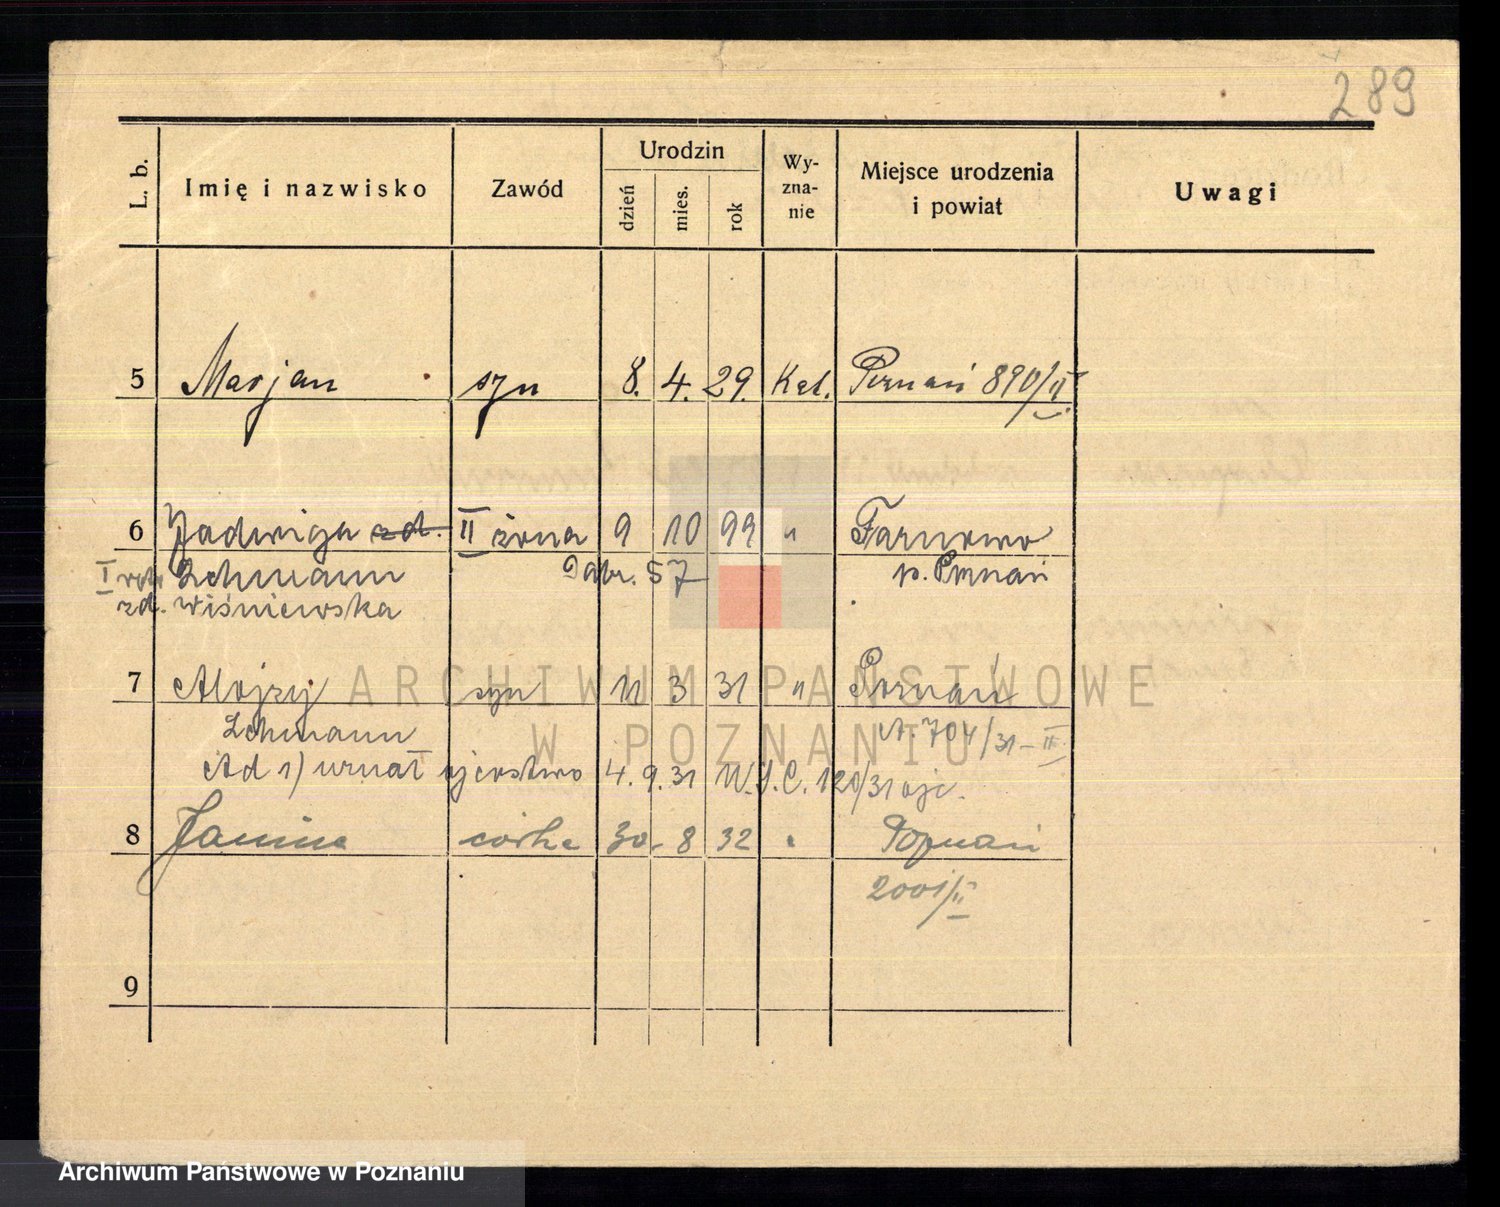 289
L. b.
Imię i nazwisko
Zawód
Urodzin
dzień
mies.
rok
Wy-
zna-
nie
Miejsce urodzenia
i powiat
Uwagi
5 Marjan syn 8. 4. 29. Kat. Poznań 890/II
6 Jadwiga zd. II żona 9 10 99 " Tarnowo
I voto Lehmann 57 p. Poznań
zd. Wiśniewska
7 Alojzy syn 11 3 31 " Poznań
Lehmann A. 704/31-II
Ad 1) uznał ojcostwo 4.9.31 U.S.C. 120/31 ojc.
8 Janina córka 30. 8 32 " Poznań
2001/II
9
ARCHIWUM PAŃSTWOWE
W POZNANIU
Archiwum Państwowe w Poznaniu